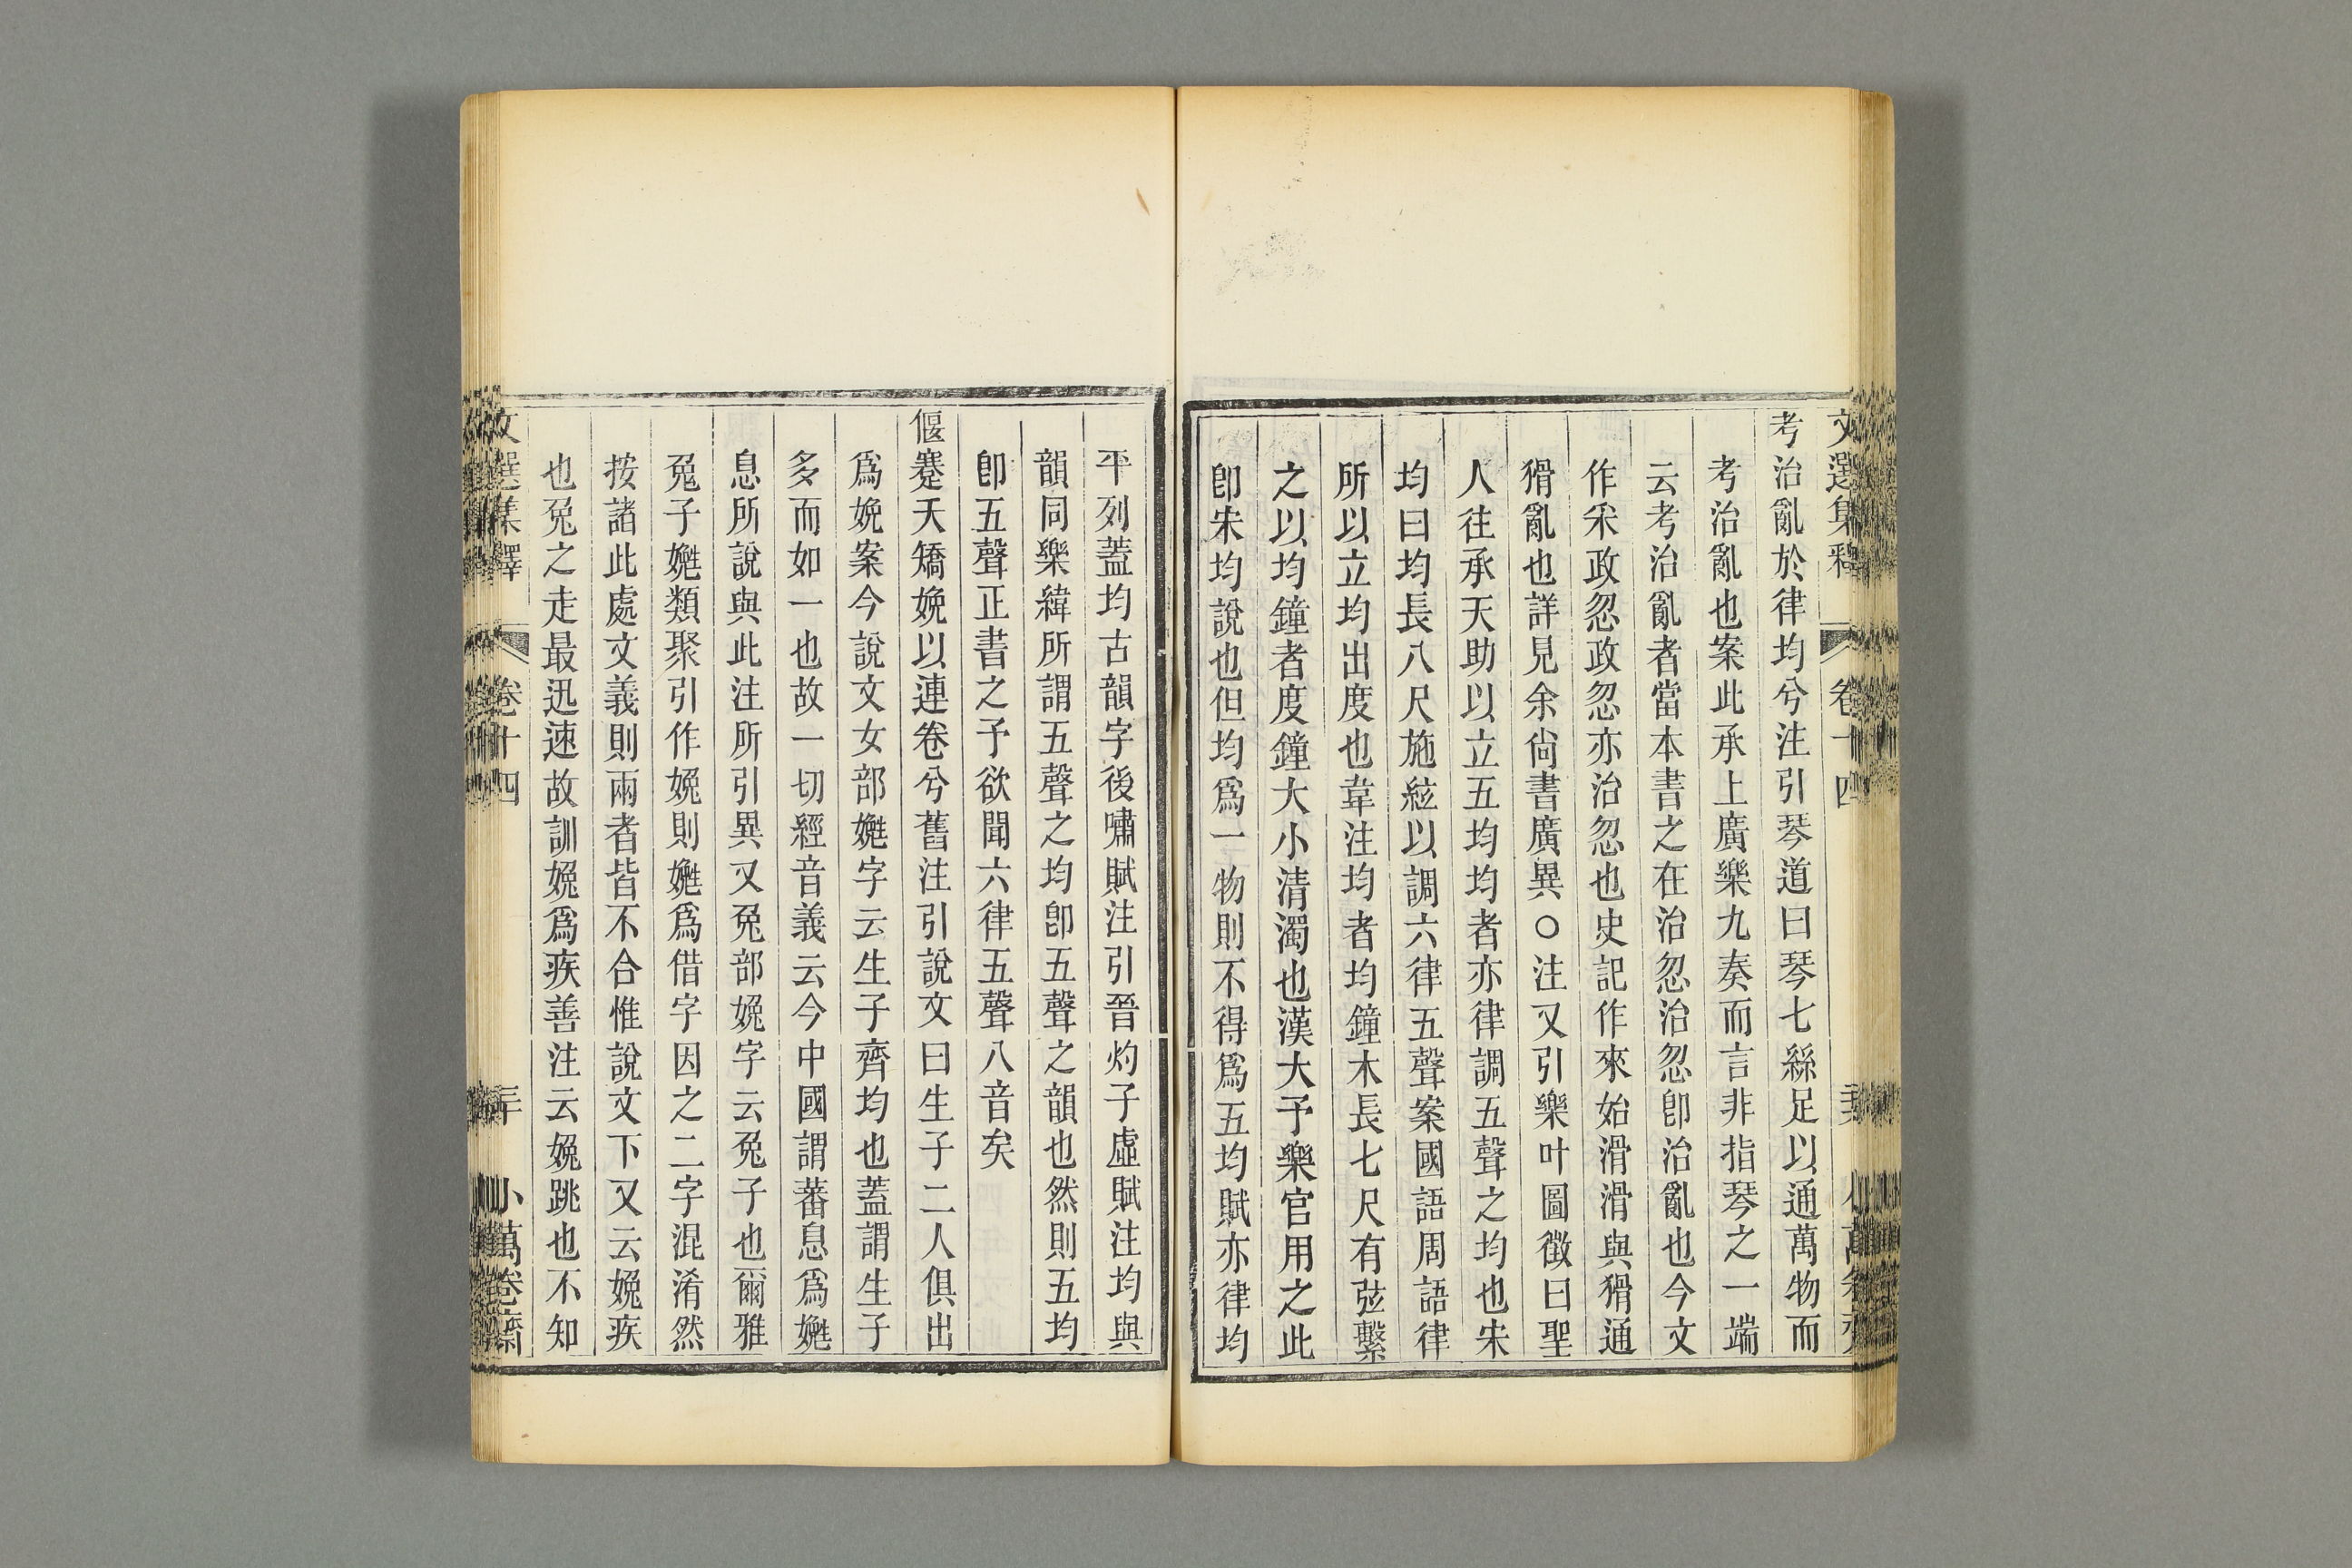 文選集釋 卷十四
考治亂於律均兮注引琴道曰琴七絲足以通萬物而
考治亂也案此承上廣樂九奏而言非指琴之一端
云考治亂者當本書之在治忽治忽卽治亂也今文
作采政忽政忽亦治忽也史記作來始滑滑與猾通
猾亂也詳見余尙書廣異○注又引樂叶圖徵曰聖
人往承天助以立五均均者亦律調五聲之均也宋
均曰均長八尺施絃以調六律五聲案國語周語律
所以立均出度也韋注均者均鐘木長七尺有弦繫
之以均鐘者度鐘大小清濁也漢大予樂官用之此
卽宋均說也但均爲一物則不得爲五均賦亦律均
平列蓋均古韻字後嘯賦注引晉灼子虛賦注均與
韻同樂緯所謂五聲之均卽五聲之韻也然則五均
卽五聲正書之予欲聞六律五聲八音矣
偃蹇夭矯娩以連卷兮舊注引說文曰生子二人俱出
爲娩案今說文女部㜔字云生子齊均也蓋謂生子
多而如一也故一切經音義云今中國謂蕃息爲㜔
息所說與此注所引異又兔部㝹字云兔子也爾雅
兔子㜔類聚引作㝹則㜔爲借字因之二字混淆然
按諸此處文義則兩者皆不合惟說文下又云㝹疾
也兔之走最迅速故訓㝹爲疾善注云㝹跳也不知
文選集釋 卷十四 小萬卷齋